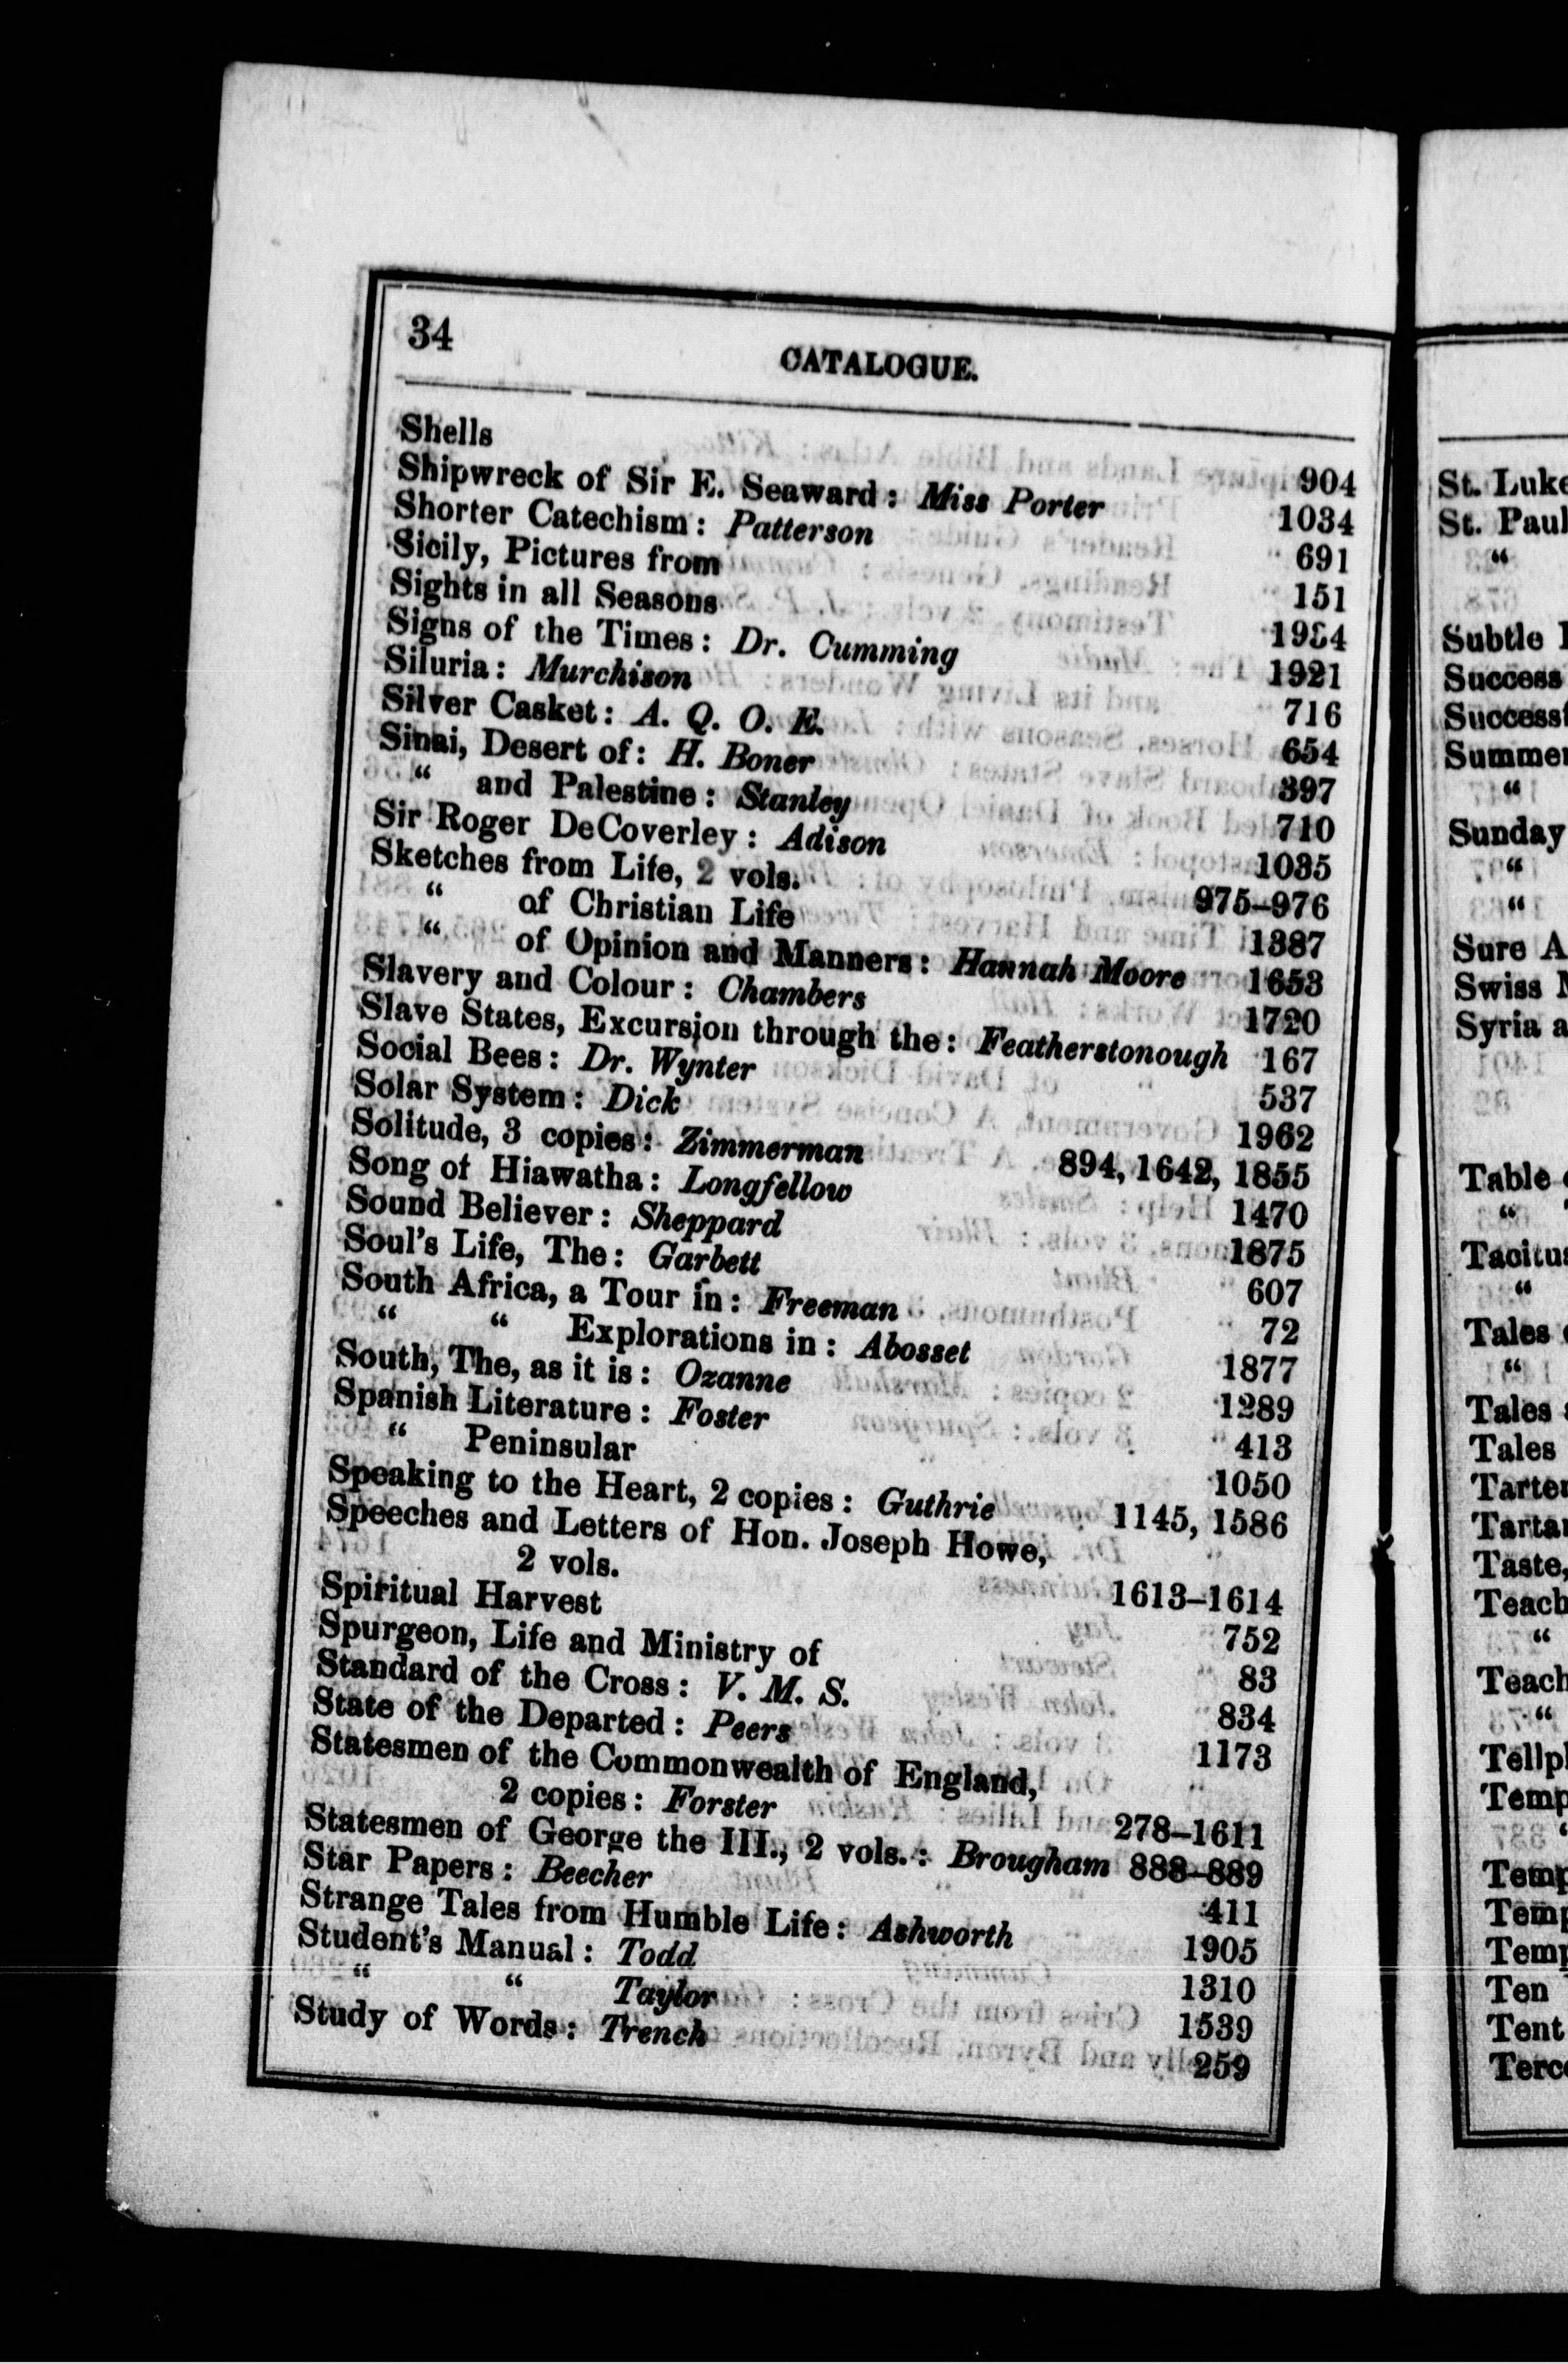 34
CATALOGUE.
Shells 904
Shipwreck of Sir E. Seaward: Miss Porter 1034
Shorter Catechism: Patterson 691
Sicily, Pictures from 151
Sights in all Seasons 1984
Signs of the Times: Dr. Cumming 1921
Siluria: Murchison 716
Silver Casket: A. Q. O. E. 654
Sinai, Desert of: H. Boner 397
“ and Palestine: Stanley 710
Sir Roger DeCoverley: Adison 1035
Sketches from Life, 2 vols. 975-976
“ of Christian Life 1387
“ of Opinion and Manners: Hannah Moore 1653
Slavery and Colour: Chambers 1720
Slave States, Excursion through the: Featherstonough 167
Social Bees: Dr. Wynter 537
Solar System: Dick 1962
Solitude, 3 copies: Zimmerman 894, 1642, 1855
Song of Hiawatha: Longfellow 1470
Sound Believer: Sheppard 1875
Soul's Life, The: Garbett 607
South Africa, a Tour in: Freeman 72
“ “ Explorations in: Abosset 1877
South, The, as it is: Ozanne 1289
Spanish Literature: Foster 413
“ Peninsular 1050
Speaking to the Heart, 2 copies: Guthrie 1145, 1586
Speeches and Letters of Hon. Joseph Howe,
2 vols. 1613-1614
Spiritual Harvest 752
Spurgeon, Life and Ministry of 83
Standard of the Cross: V. M. S. 834
State of the Departed: Peers 1173
Statesmen of the Commonwealth of England,
2 copies: Forster 278-1611
Statesmen of George the III., 2 vols.: Brougham 888-889
Star Papers: Beecher 411
Strange Tales from Humble Life: Ashworth 1905
Student's Manual: Todd 1310
“ “ Taylor 1539
Study of Words: Trench 259
St. Luke
St. Paul
“
Subtle
Success
Success
Summe
“
Sunday
“
“
Sure A
Swiss
Syria a
Table
“
Tacitu
“
Tales
“
Tales
Tales
Tarte
Tarta
Taste,
Teach
“
Teach
“
Tellp
Temp
“
Temp
Temp
Temp
Ten
Tent
Terc